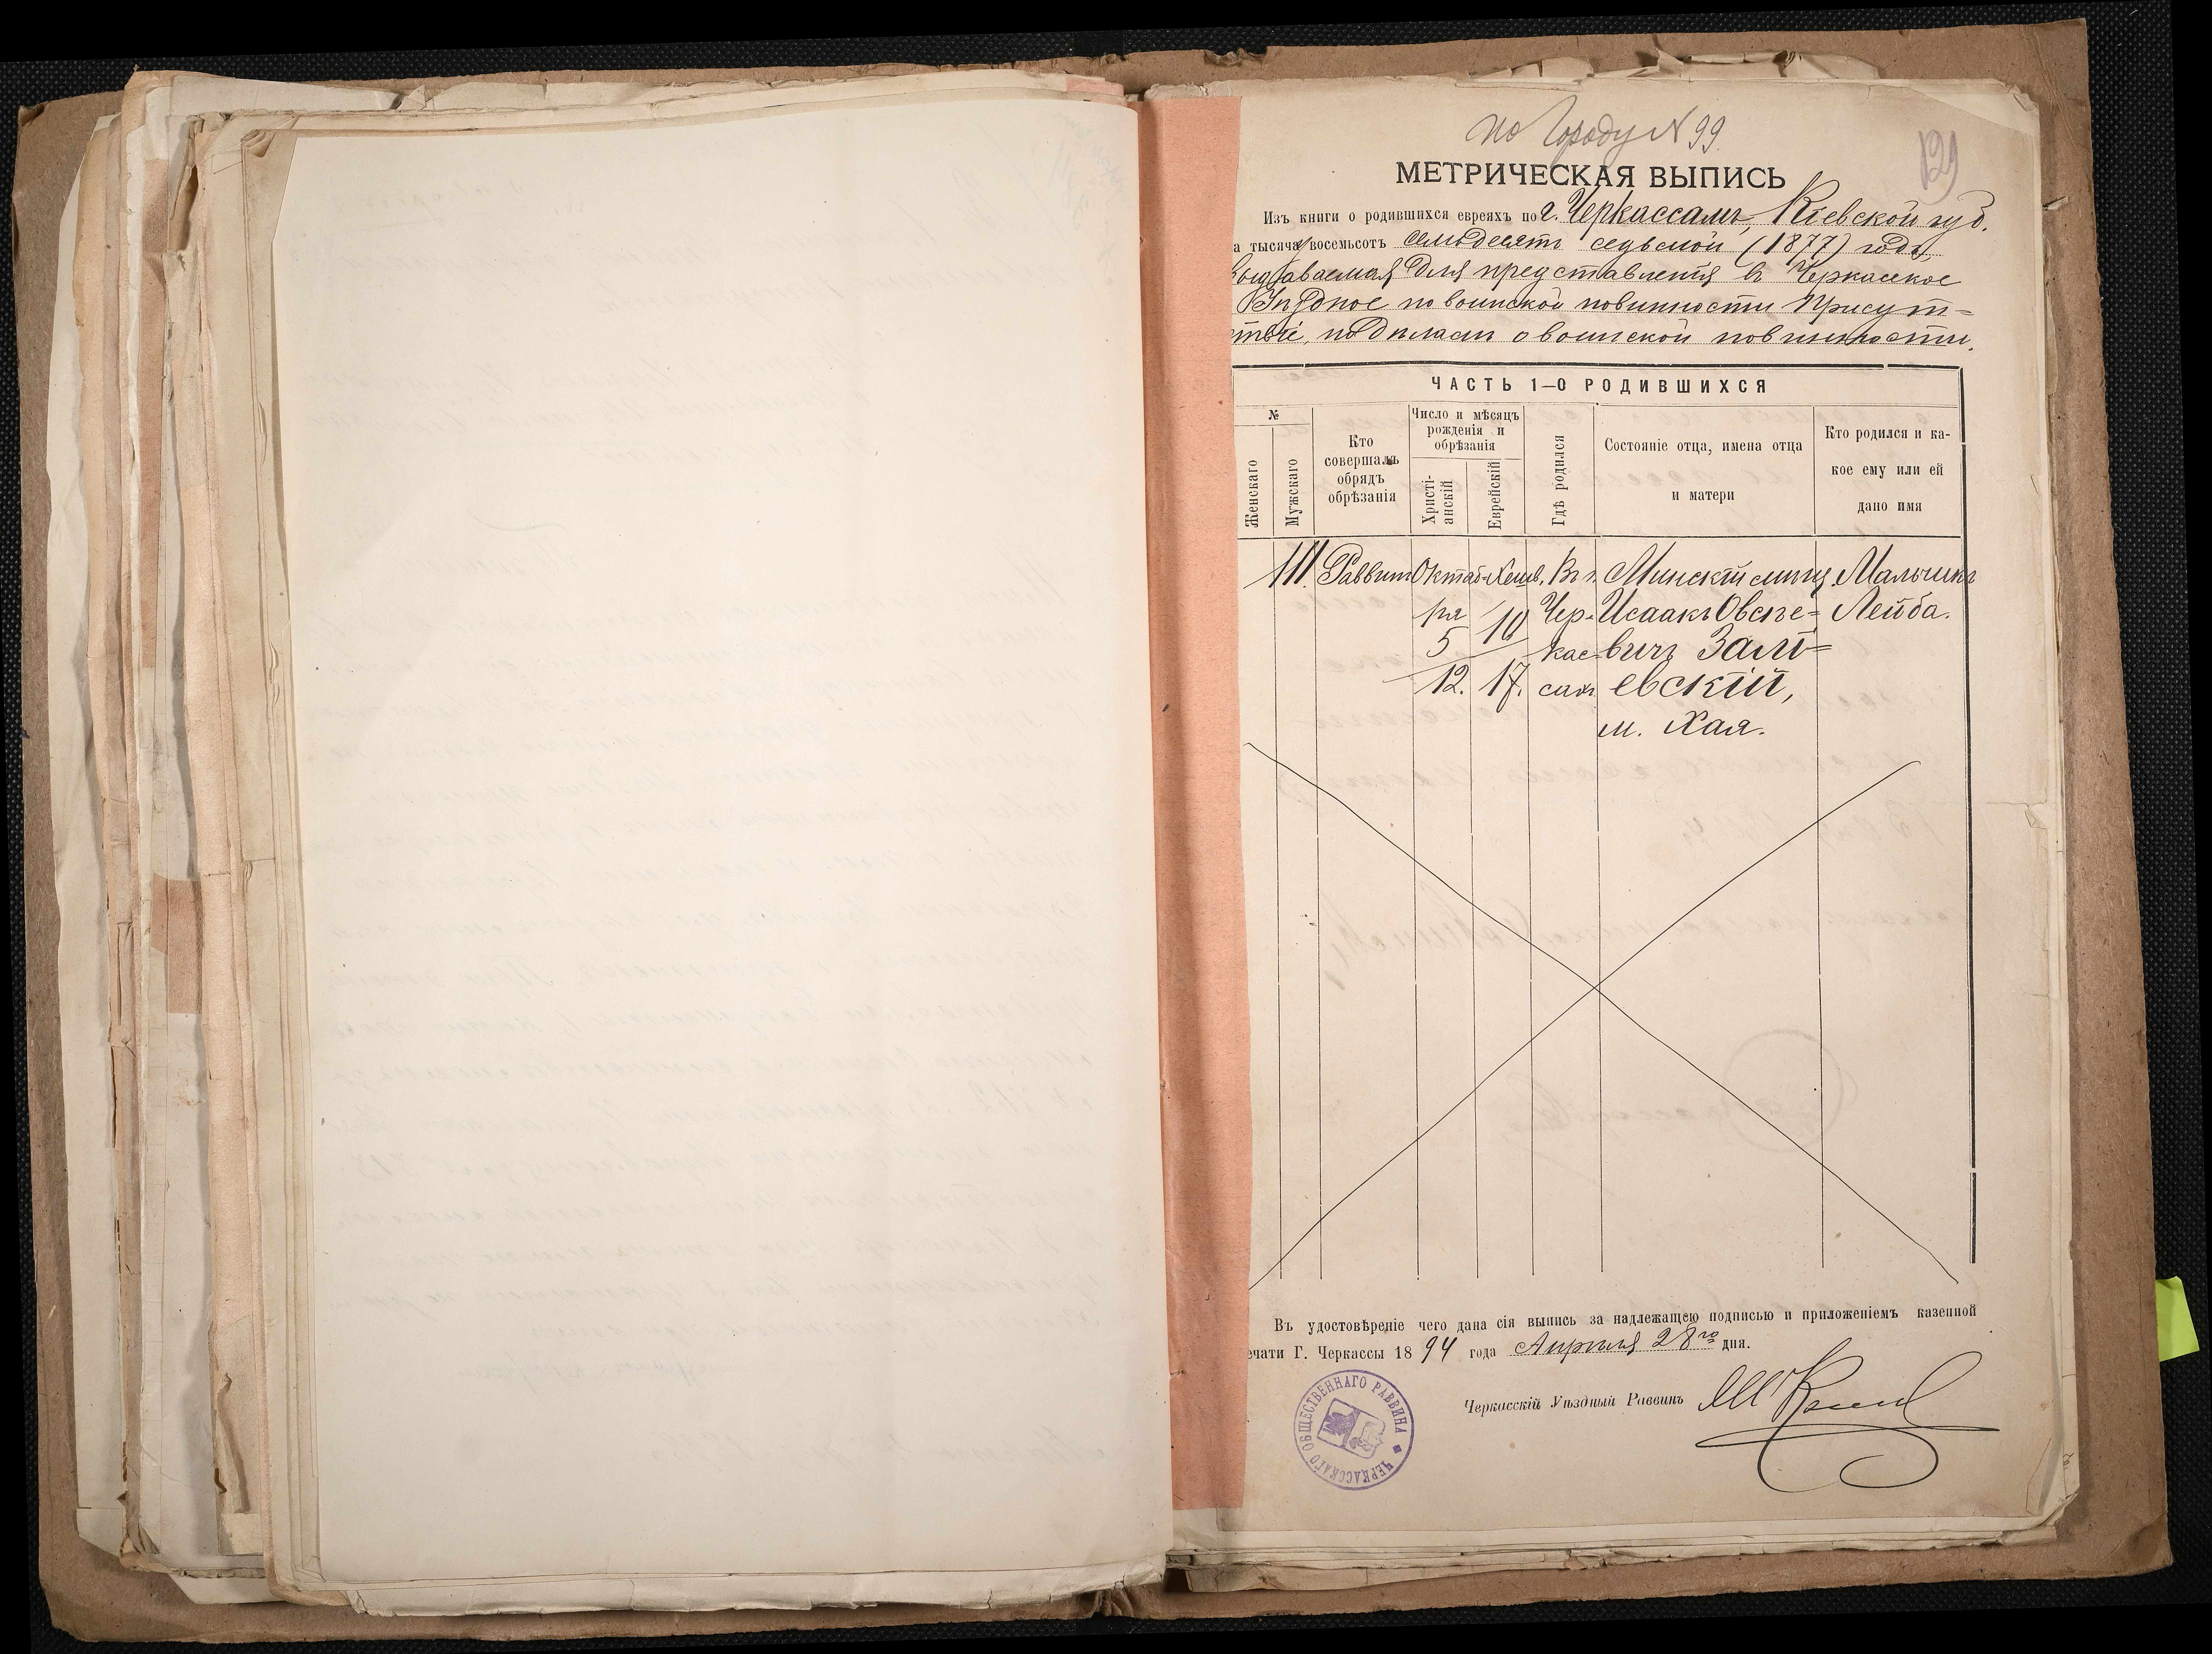 по Городу N 99.
129
МЕТРИЧЕСКАЯ ВЫПИСЬ
Изъ книги о родившихся евреяхъ по г. Черкассамъ, Кіевской губ.
а тысяча восемьсотъ семьдесятъ седьмой (1877) годъ,
Выдаваемая для представленія въ Черкасское
Уѣздное по воинской повинности Присут=
ствіе, по дѣламъ о воинской повинности.
ЧАСТЬ 1—О РОДИВШИХСЯ
№
Женскаго
Мужскаго
Кто совершалъ обрядъ обрѣзанія
Число и мѣсяцъ рожденія и обрѣзанія
Христі-анскій
Еврейскій
Гдѣ родился
Состояніе отца, имена отца и матери
Кто родился и ка-кое ему или ей дано имя
111. Раввинъ Октяб- Хешв. Въ г. Минскій мѣщ. Мальчикъ
ря 10 Чер- Исаакъ Овсѣе= Лейба.
5 кас- вичъ Залі=
12. 17. сахъ евскій,
м. Хая.
Въ удостовѣреніе чего дана сія выпись за надлежащею подписью и приложеніемъ казенной
ечати Г. Черкассы 1894 года Апрѣля 28го дня.
Черкасскій Уѣздный Раввинъ
ЧЕРКАССКАГО ОБЩЕСТВЕННАГО РАВВИНА